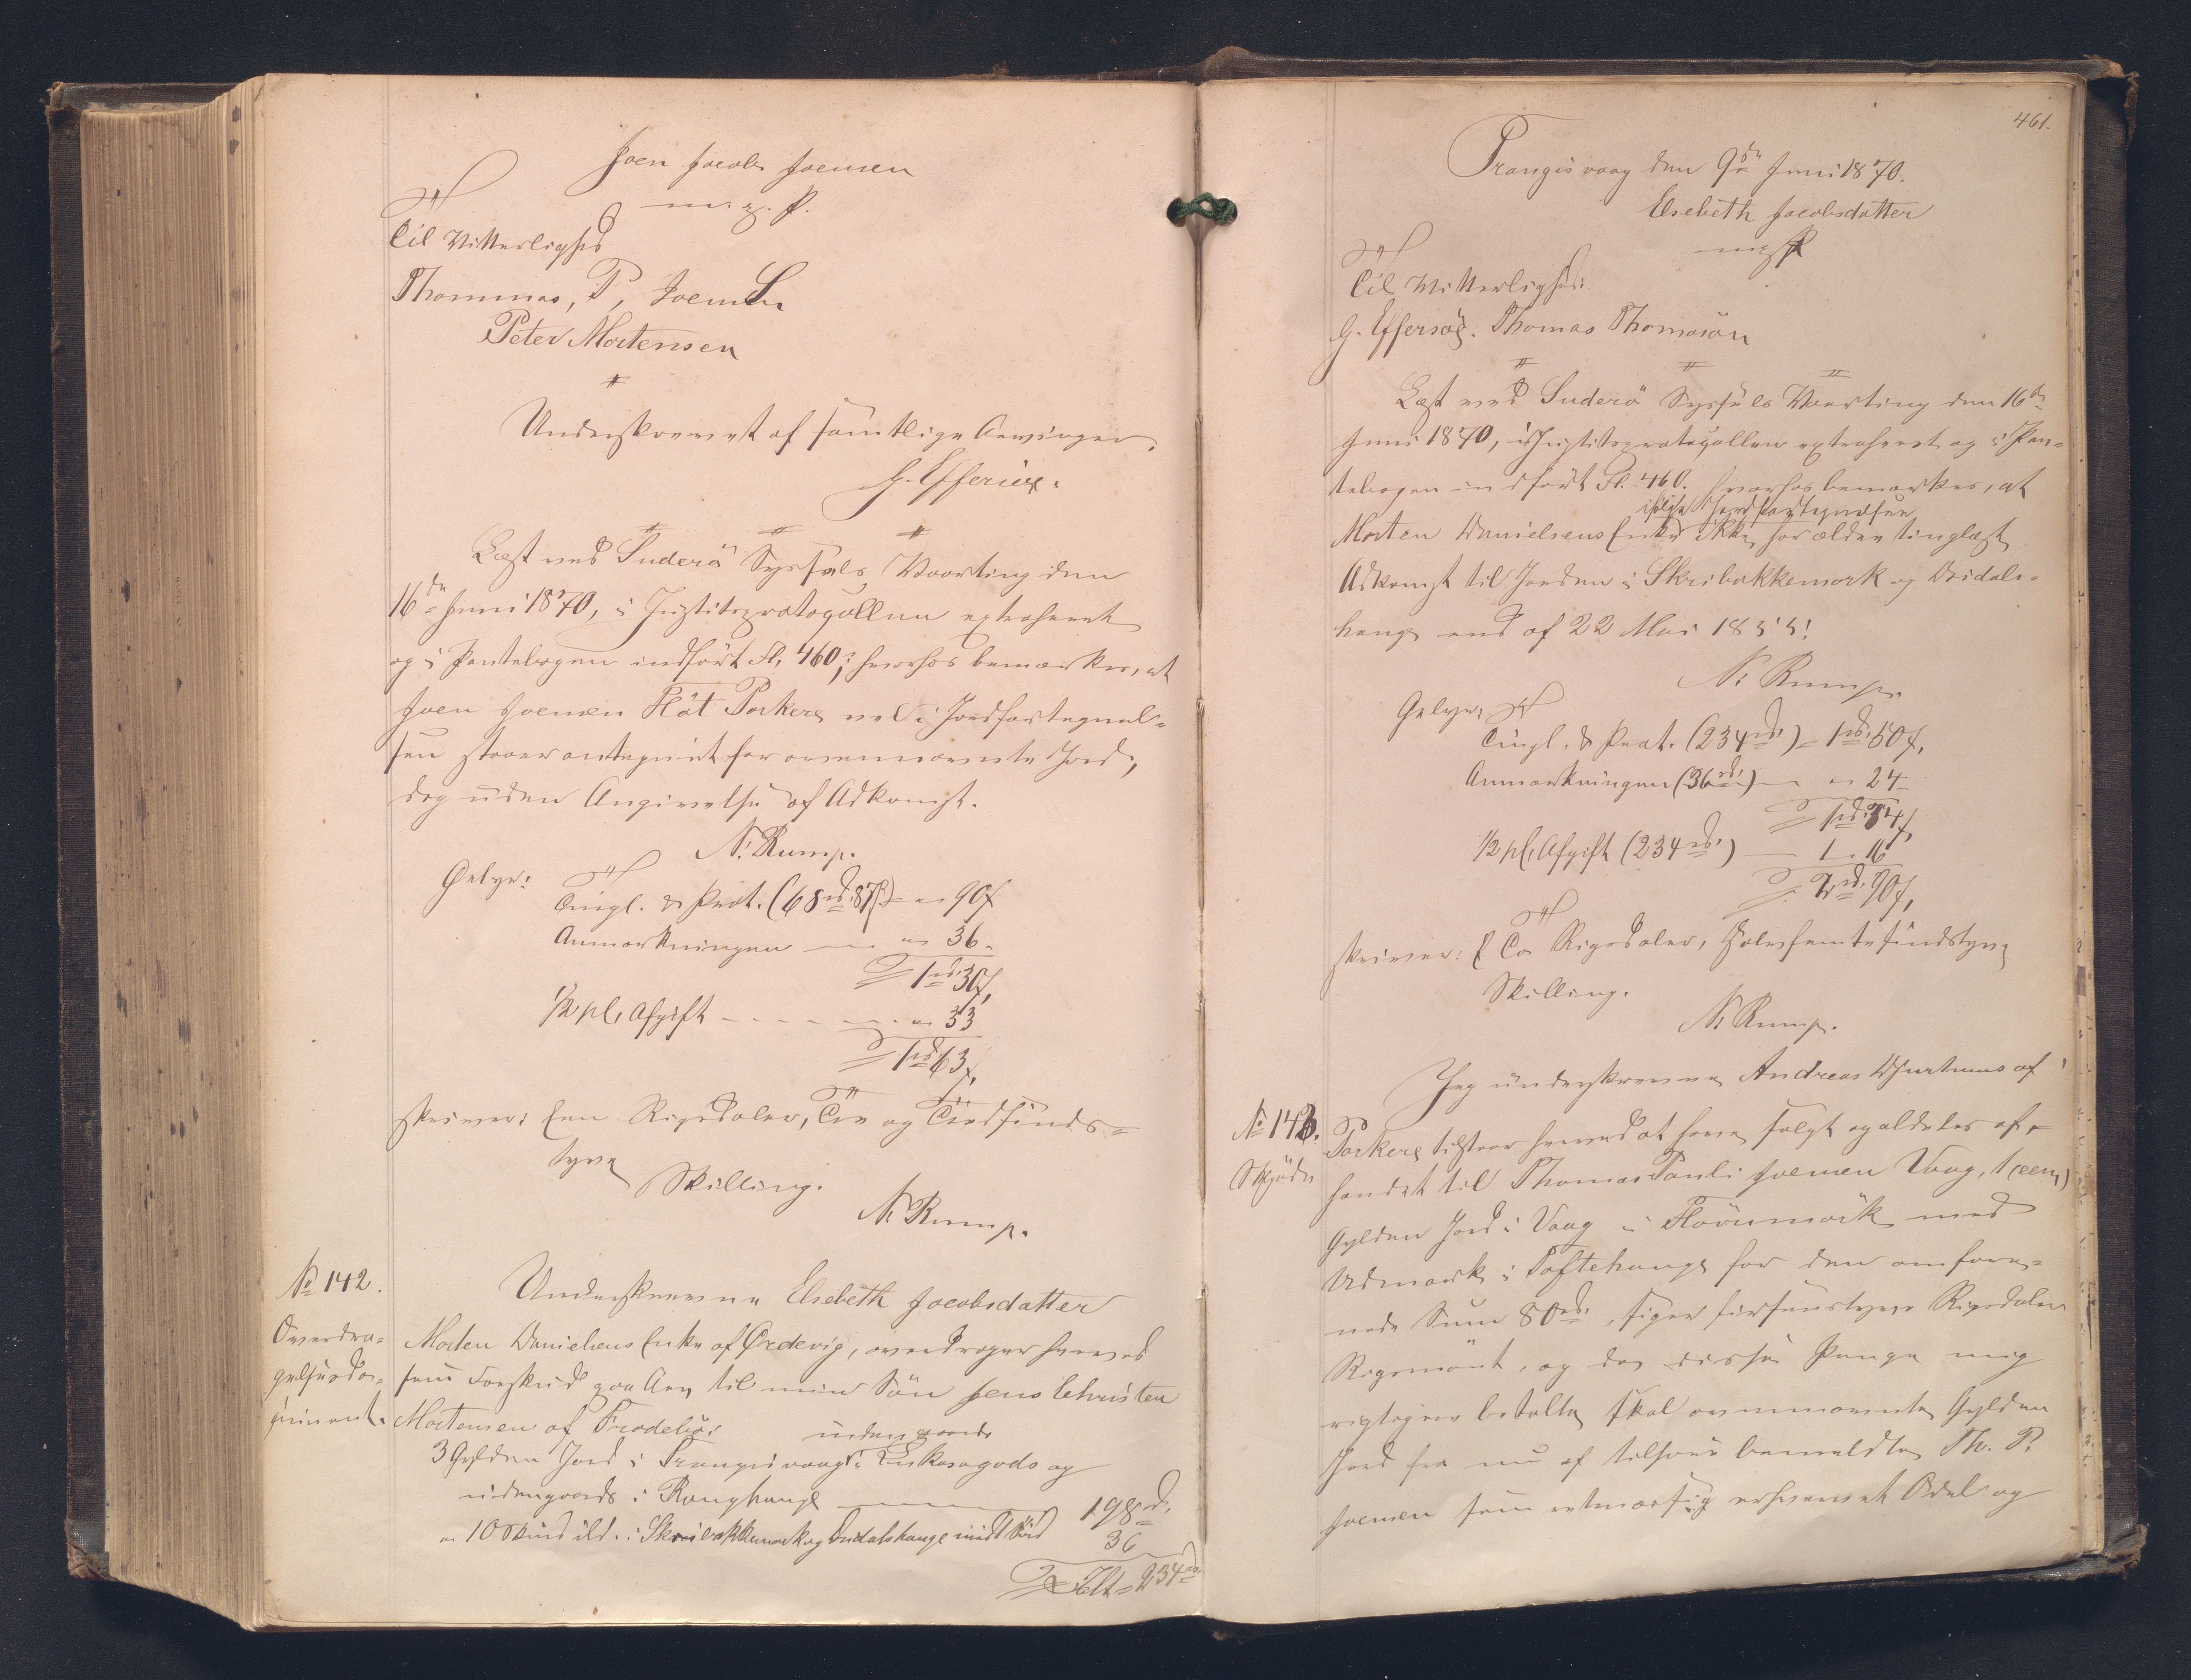 Joen Jacob Joensen
m. p.
Til Vitterlighed
Thommas, P, Joensen
Peter Mortensen
Underskrevet af samtlige Arvinger.
G. Effersöe.
Læst ved Suderö Syssels Vaarting den
16de Juni 1870, i Justitsprotocollen extraheret
og i Pantebogen indført Fl. 460; hvorhos bemærkes, at
Joen Joensen Flöt Porkere vel i Jordfortegnel-
sen staaer antegnet for ovennævnte Jord,
dog uden Angivelse af Adkomst.
N. Rump.
Gebyr:
Tingl. & Prot. (68rd. 87ß) - " 90ß
Anmærkningen — " 36 -
1rd. 30ß,
1/2 pCt. Afgift - - - - " 33
1rd. 63ß,
skriver: Een Rigsdaler, Tre og Tredsinds-
tyve
Skilling.
N. Rump.
No 142.
Overdra-
gelsesdo-
cument.
Underskrevne Elsebeth Jacobsdatter
Morten Danielsens Enke af Ördevig, overdrager herved
som Forskud paa Arv til min Sön Jens Christen
Mortensen af Frodebö:
indengaards
3 Gylden Jord i Trangisvaag i Enkesagods og
udengaards i Ranghauge — 198rd.
" 10 Skind ild. i Skribakkemork og Dridalshauge 36
Ialt = 234rd.
461.
Trangisvaag den 9de Juni 1870.
Elsebeth Jacobsdatter
m. p.
Til Vitterlighed:
G. Effersöe. Thomas Thomasön
Læst ved Suderö Syssels Vaarting den 16de
Juni 1870, i Justitsprotocollen extraheret og i Pan-
tebogen indført Fl. 460. hvorhos bemærkes, at
ifölge Jordfortegnelsen
Morten Danielsens Enke ikke har ældre tinglæst
Adkomst til Jorden i Skribakkemork og Dridals-
hauge end af 22 Mai 1855!
N. Rump.
Gebyr:
Tingl. & Prot. (234rd.) - 1rd. 50ß,
Anmærkningen (36rd.) — " 24 -
1rd. 74ß,
1/2 pCt. Afgift (234rd.) — 1 " 16
2rd. 90ß,
skriver: To Rigsdaler, Halvfemtesindstyve
Skilling.
N. Rump.
No 143.
Skjöde
Jeg underskrevne Andreas Djurhuus af
Porkere tilstaar herved at have solgt og aldeles af-
hændet til Thomas Pauli Joensen Vaag, 1 (een)
Gylden Jord i Vaag i Flövumörk med
Udmark i Toftehauge for den omforе-
nede Sum 80rd., siger firsindstyve Rigsdaler
Rigsmönt, og da disse Penge mig
rigtigen betalte, skal ovennævnte Gylden
Jord fra nu af tilhöre bemeldte Th. P.
Joensen som retmæssig erhvervet Odel og